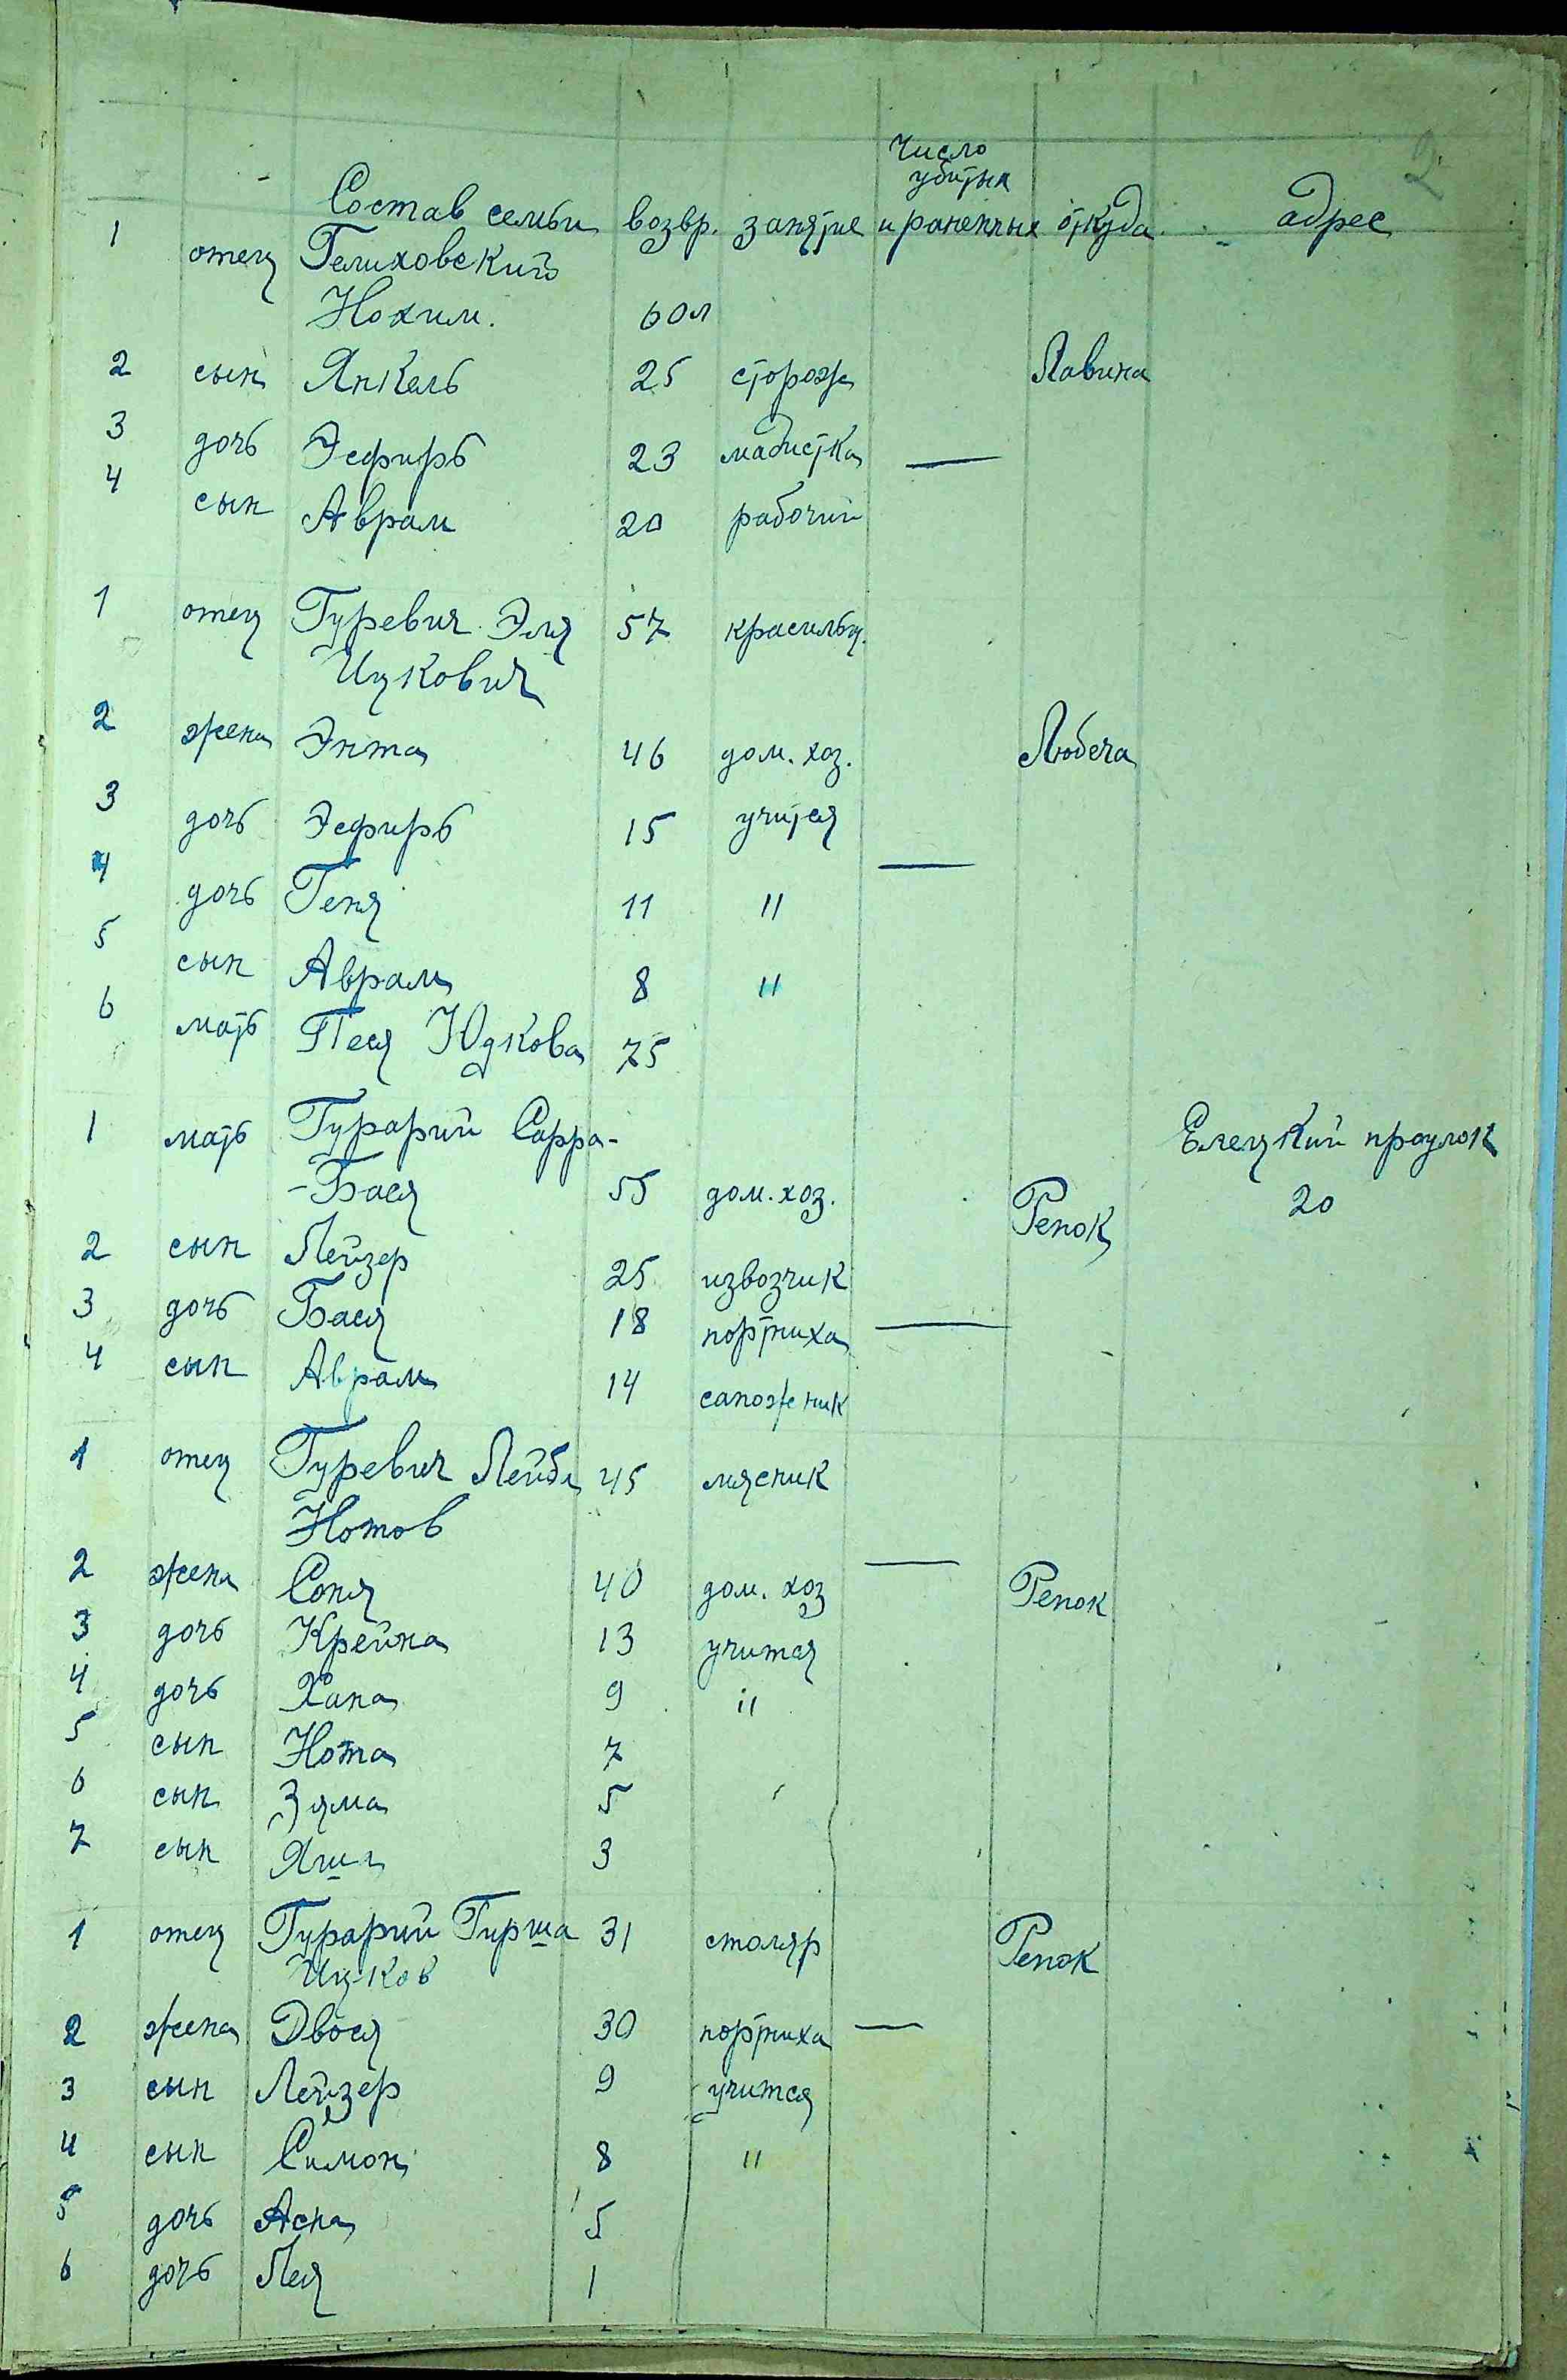 2
Число
убитых
Состав семьи возвр. занятие и раненных откуда адрес
1 отец Гелиховский
Нохим. 60л
2 сын Янкель 25 сторож Лавина
3 дочь Эсфирь 23 мадистка —
4 сын Аврам 20 рабочий
1 отец Гуревич Эля 57 красильщ.
Ицкович
2 жена Энта 46 дом. хоз. Любеча
3 дочь Эсфирь 15 учится
4 дочь Геня 11 〃 —
5 сын Аврам 8 〃
6 мать Песя Юдкова 75
1 мать Гурарий Сарра- Елецкий проулок
-Бася 55 дом. хоз. Репок 20
2 сын Лейзер 25 извозчик
3 дочь Бася 18 портниха —
4 сын Аврам 14 сапожник
1 отец Гуревич Лейба 45 мясник
Нотов
2 жена Соня 40 дом. хоз — Репок
3 дочь Крейна 13 учится
4 дочь Хана 9 〃
5 сын Нота 7
6 сын Зяма 5
7 сын Яша 3
1 отец Гурарий Гирша 31 столяр Репок
Ицков
2 жена Двося 30 портниха —
3 сын Лейзер 9 учится
4 сын Симон 8 〃
5 дочь Асна 5
6 дочь Лея 1